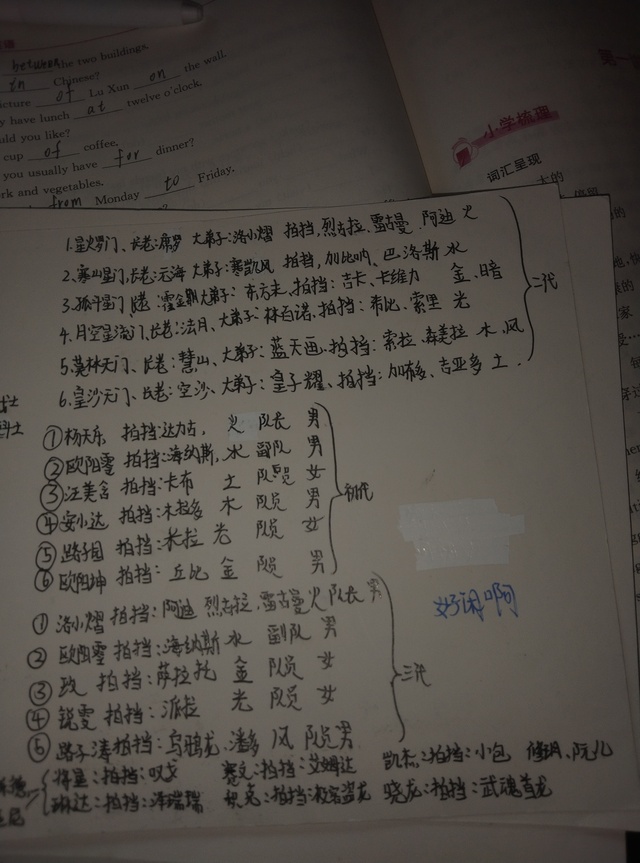 between the two buildings.
in Chinese?
icture of Lu Xun on the wall.
y have lunch at twelve o'clock.
uld you like?
cup of coffee.
you usually have for dinner?
rk and vegetables.
from Monday to Friday.
小学梳理
词汇呈现
1.星火门、长老:席罗 大弟子:洛小熠 拍挡,烈古拉,雷古曼、阿迪 火
2、寒山星门,长老:元海 大弟子:寒凯风 拍挡,加比呐、巴洛斯 水
3、孤斗星门 长老:霍金 大弟子:东方末、拍挡:吉卡、卡维力 金、暗
4、月空星流门、长老:法月、大弟子:林百诺、拍挡:希比、索里 光
5、莫林天门、长老:慧山、大弟子:蓝天画、拍挡:索拉、森美拉 木、风
6、皇沙天门、长老:空沙、大弟子:皇子耀、拍挡:加布多、吉亚多 土.
二代
①杨天乐 拍挡:达力古, 火 队长 男
②欧阳零 拍挡:海纳斯,水 副队 男
③汪美舍 拍挡:卡布 土 队员 女
④安小达 拍挡:木拉多 木 队员 男
⑤路子园 拍挡:米拉 光 队员 女
⑥欧阳坤 拍挡:丘比 金 队员 男
初代
好闲啊
①洛小熠 拍挡:阿迪 烈古拉,雷古曼 火 队长 男
②欧阳零 拍挡:海纳斯 水 副队 男
③玫 拍挡:萨拉托 金 队员 女
④锐雯 拍挡:派拉 光 队员 女
⑤路子涛 拍挡:乌鸦龙、潘多 风 队员 男
三代
将星:拍挡:叹戈 赛文:拍挡:艾姆达 凯杰:拍挡:小包
琳达:拍挡:泽瑞瑞 积克:拍挡:极客盗龙 骁龙:拍挡:武魂首龙